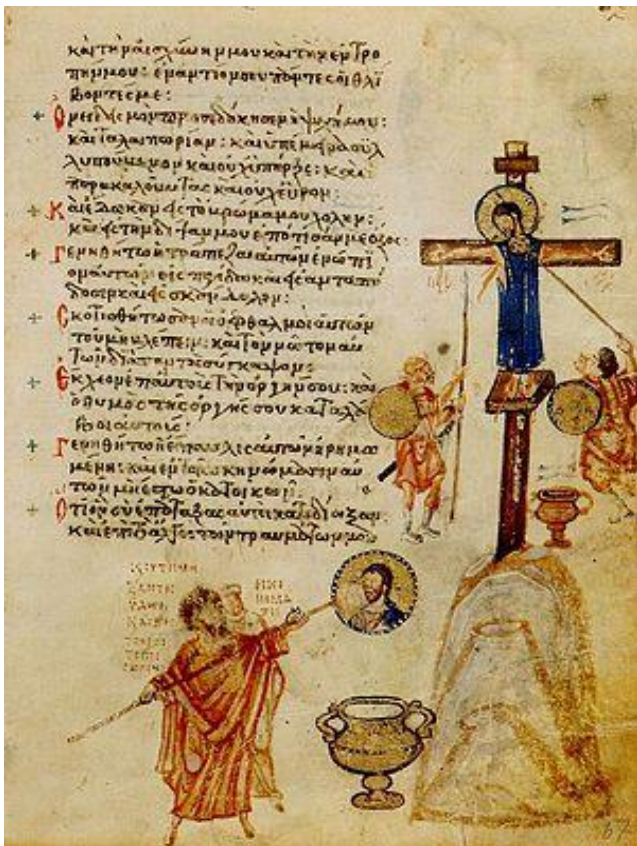 και την αισχυνην μου και την εντρο
πην μου: εναντιον σου παντες οι θλι
βοντες με:
Ονειδισμον προσεδοκησεν η ψυχη μου:
και ταλαιπωριαν: και υπεμεινα συλ
λυπουμενον και ουχ υπηρξε: και
παρακαλουντας και ουχ ευρον:
Και εδωκαν εις το βρωμα μου χολην:
και εις την διψαν μου εποτισαν με οξος:
Γενηθητω η τραπεζα αυτων ενωπι
ον αυτων εις παγιδα και εις ανταπο
δοσιν και εις σκανδαλον:
Σκοτισθητωσαν οι οφθαλμοι αυτων
του μη βλεπειν: και τον νωτον αυ
των δια παντος συγκαμψον:
Εκχεον επ αυτους την οργην σου: και
ο θυμος της οργης σου καταλα
βοι αυτους:
Γενηθητω η επαυλις αυτων ηρημω
μενη: και εν τοις σκηνωμασιν αυ
των μη εστω ο κατοικων:
Οτι ον συ επαταξας αυτοι κατεδιωξαν
και επι το αλγος των τραυματων μου
67